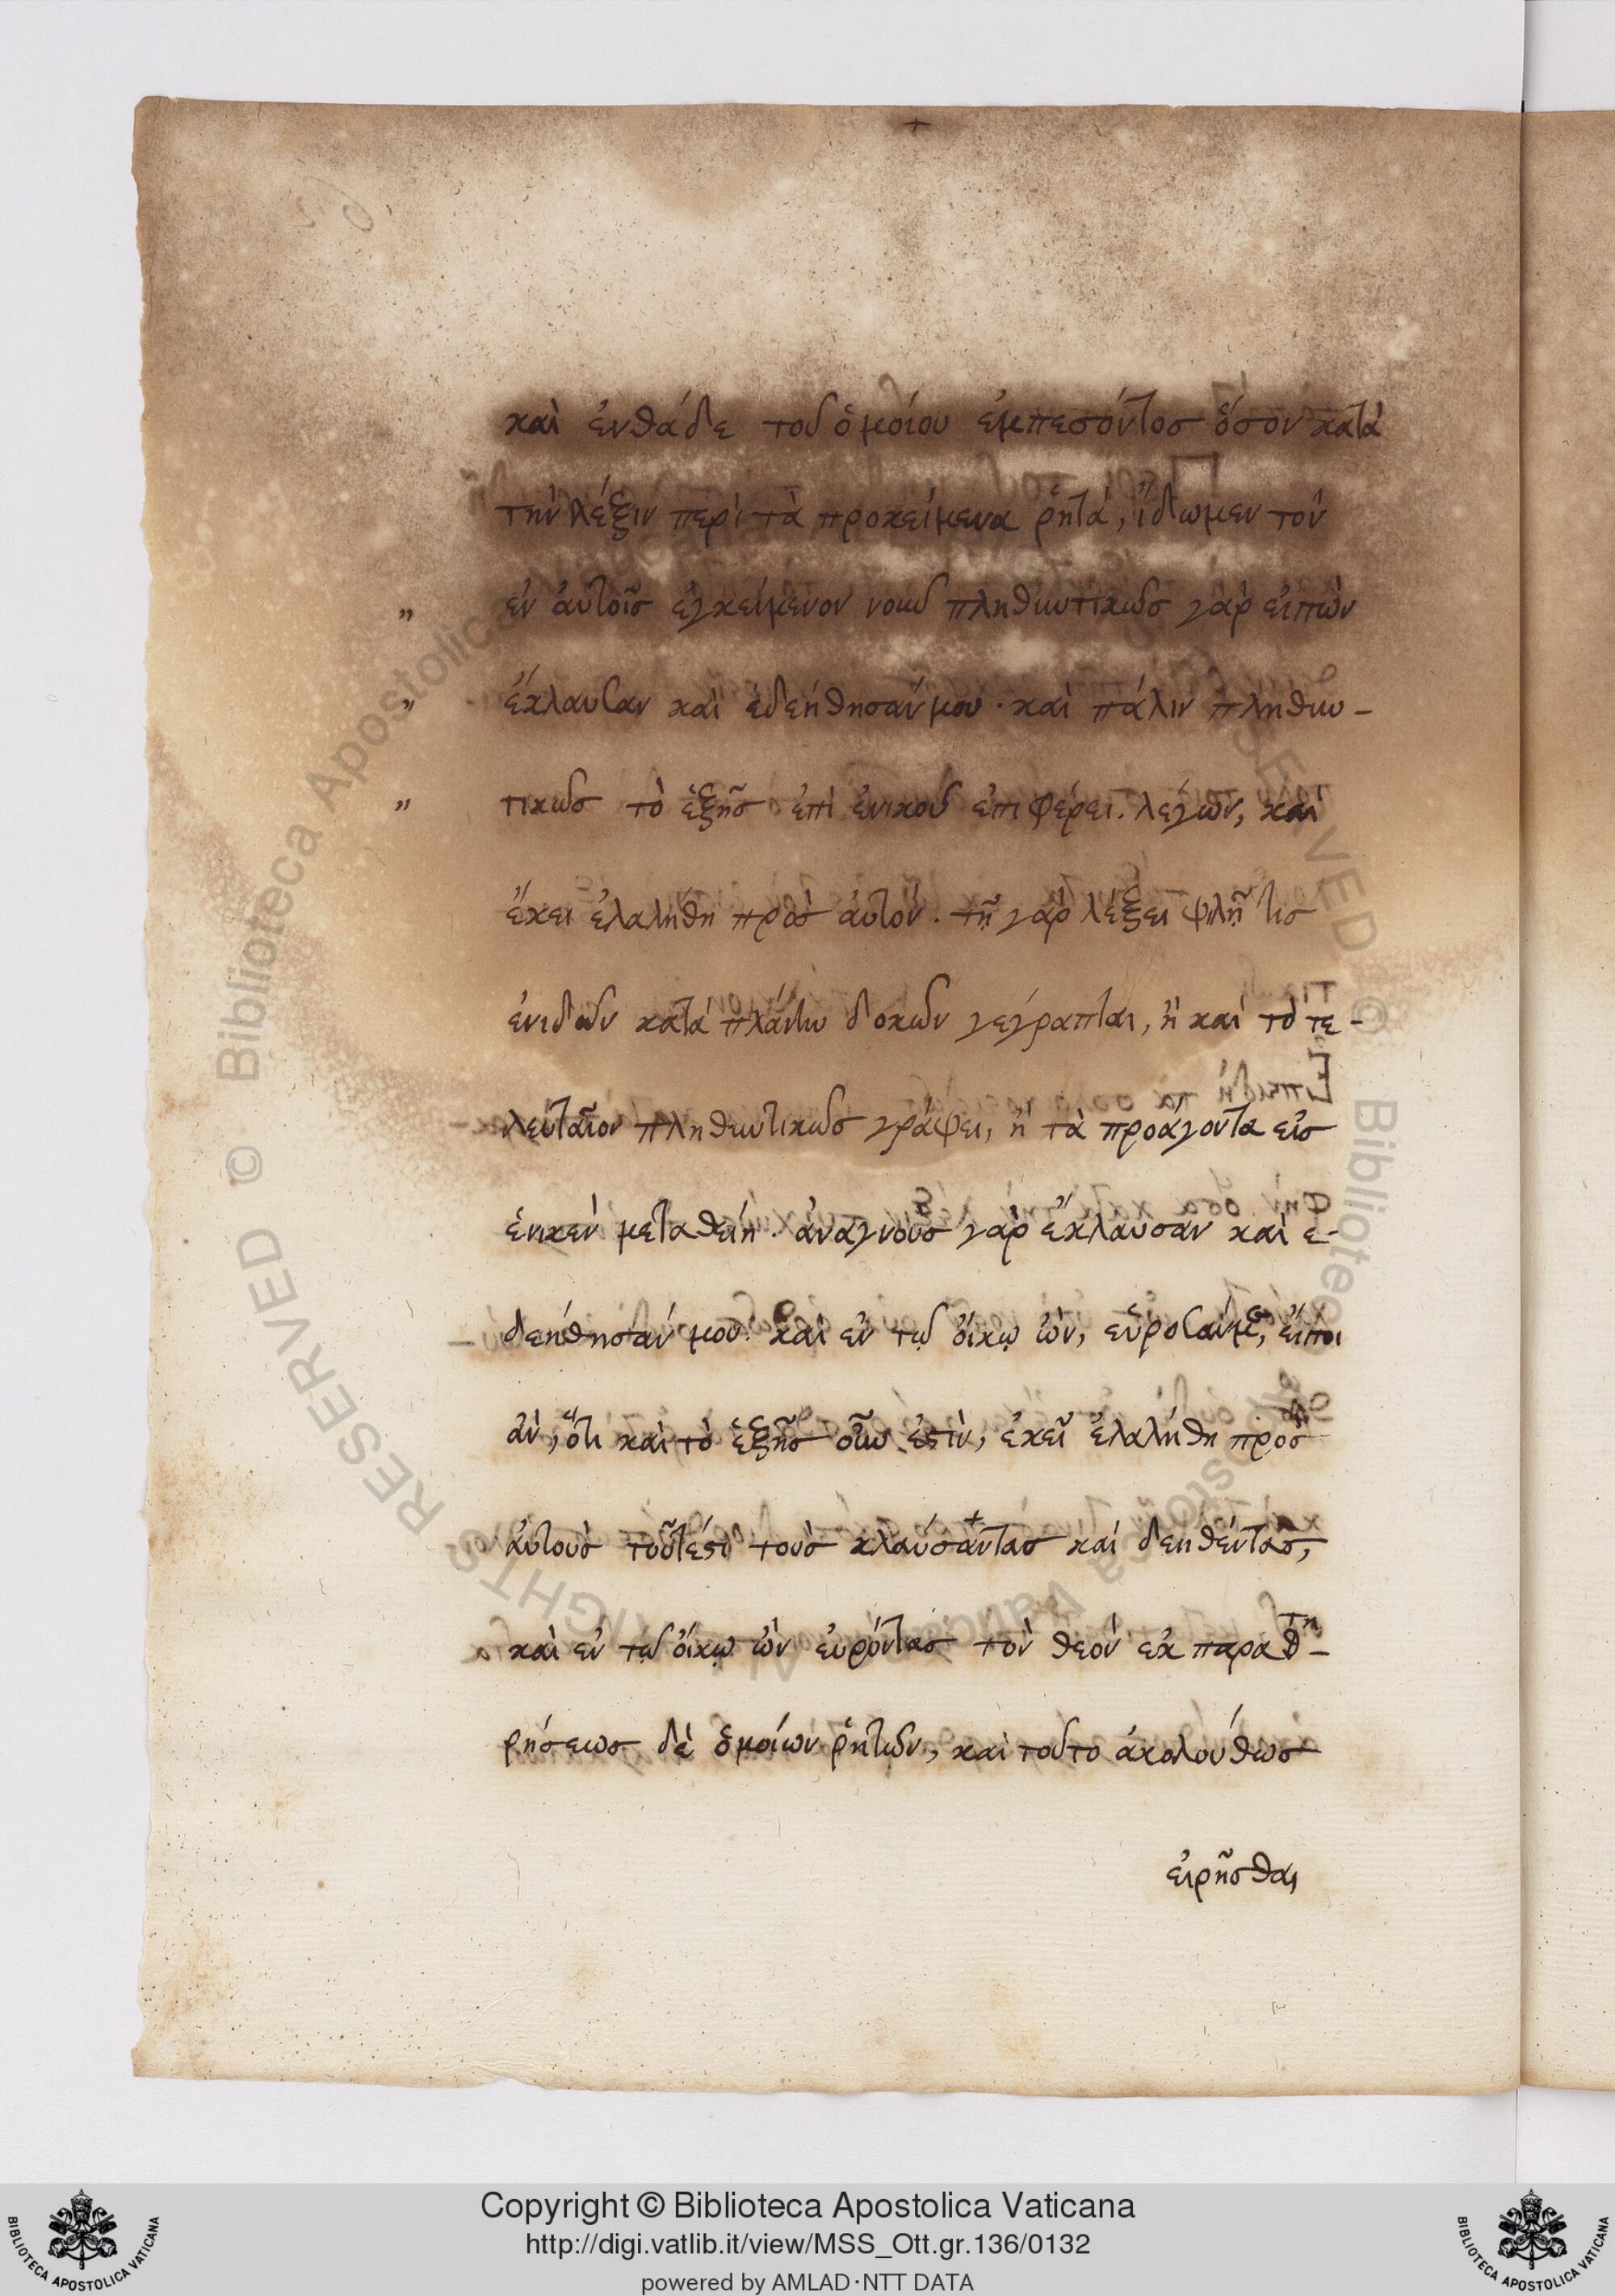 καὶ ἐνθάδε τοῦ ὁμοίου ἐμπεσόντοσ ὅσον κατὰ
τὴν λέξιν περὶ τὰ προκείμενα ῥητά, ἴδωμεν τὸν
ἐν ἀυτοῖσ ἐγκείμενον νοῦν πληθυντικῶσ γὰρ εἰπὼν
„
ἔκλαυσαν καὶ ἐδεήθησάν μου · καὶ πάλιν πληθυν-
„
τικῶσ τὸ ἑξῆσ ἐπὶ ἑνικοῦ ἐπιφέρει. λέγων, καὶ
„
ἔκει ἐλαλήθη πρὸσ ἀυτόν. τῇ γὰρ λέξει ψιλῇ τισ
ἐνιδὼν κατὰ πλάνην δοκῶν γέγραπται, ἢ καὶ τὸ τε-
λευταῖον πληθυντικῶσ γράφει, ἢ τὰ προάγοντα εἰσ
ἑνικὸν μεταθείη. ἀναγνοὺσ γὰρ ἔκλαυσαν καὶ ἐ-
δεήθησάν μου. καὶ ἐν τῷ ὄικῳ ὢν, εὕροσάν με, εἴποι
ἀν, ὅτι καὶ τὸ ἑξῆσ οὖν ἐστὶν, ἐκεῖ ἐλαλήθη πρὸσ
ἀυτοὺσ τοῦτέστι τοὺσ κλαύσαντασ καὶ δεηθέντασ,
καὶ ἐν τῷ ὄικῳ ὢν ἑυρόντασ τὸν θεόν ἐκ παρατη-
ρήσεωσ δὲ ὁμοίων ῥητῶν, καὶ τοῦτο ἀκολούθωσ
εἰρῆσθαι
© Biblioteca Apostolica Vaticana
© Biblioteca Apostolica Vaticana
Copyright © Biblioteca Apostolica Vaticana
http://digi.vatlib.it/view/MSS_Ott.gr.136/0132
powered by AMLAD·NTT DATA
BIBLIOTECA APOSTOLICA VATICANA
BIBLIOTECA APOSTOLICA VATICANA